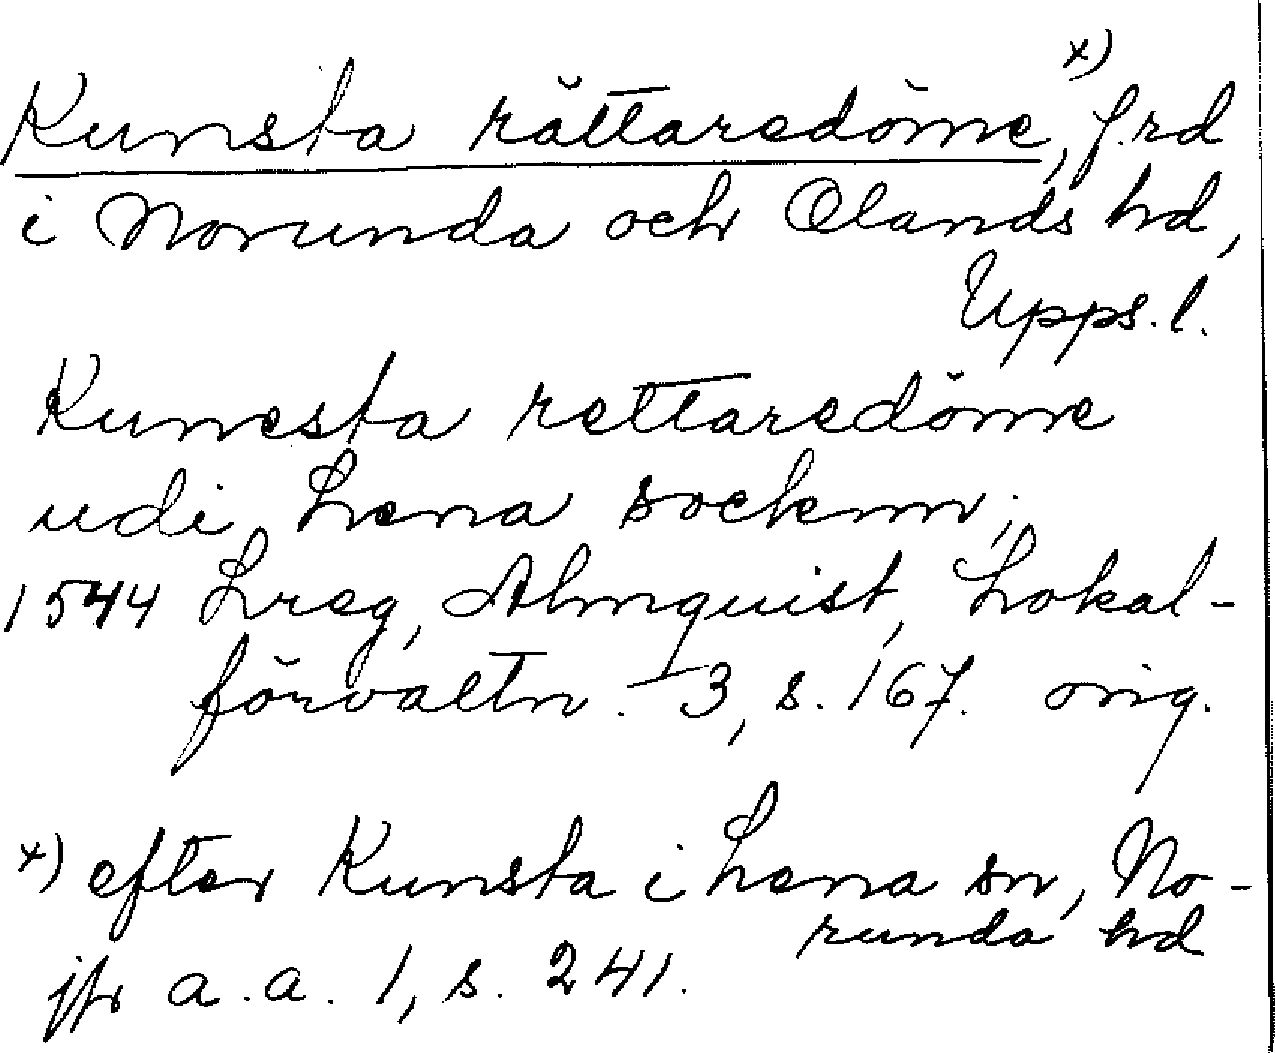 Kunsta rättaredöme x), f.rd
i Norunda och Olands hd,
Upps. l.
Kunesta rettaredöme
udi Lena socknn;
1544 Lreg, Almquist, Lokal-
förvaltn. I 3, s. 167. orig.
x) efter Kunsta i Lena sn, No-
runda hd
jfr a.a. 1, s. 241.